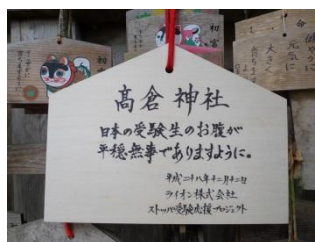 髙倉神社
日本の受験生のお腹が
平穏無事でありますように。
平成二十八年十二月十二日
ライオン株式会社
ストッパ受験応援プロジェクト
初宮
初宮
命
元気に
大きく